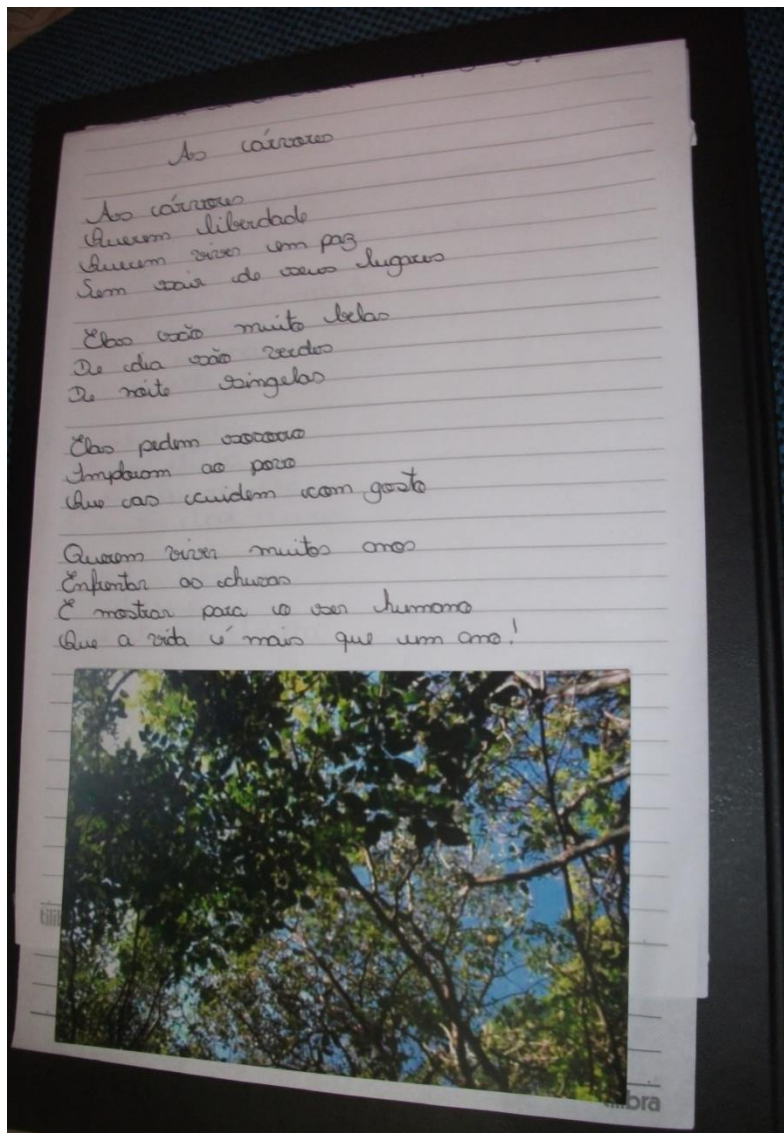 As árvores
As árvores
Querem liberdade
Querem viver em paz
Sem sair de seus lugares
Elas são muito belas
De dia são verdes
De noite singelas
Elas pedem socorro
Imploram ao povo
Que as cuidem com gosto
Querem viver muitos anos
Enfrentar as chuvas
E mostrar para o ser humano
Que a vida é mais que um ano!
tili
ibra